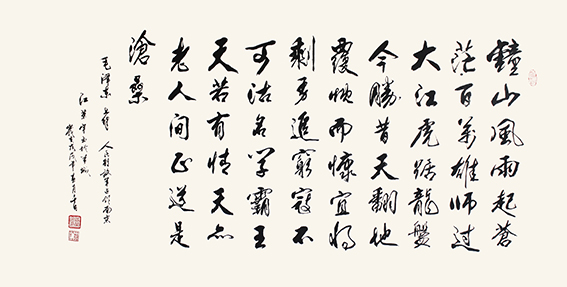 鐘山風雨起蒼
茫百萬雄師過
大江虎踞龍盤
今勝昔天翻地
覆慨而慷宜将
剩勇追窮寇不
可沽名学霸王
天若有情天亦
老人间正道是
滄桑
毛澤東 人民解放軍占領南京